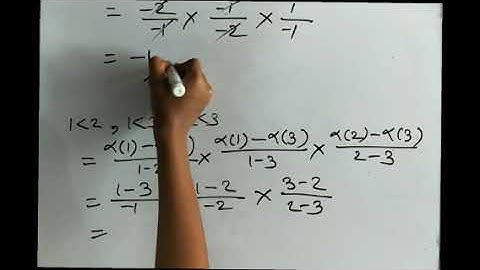 = -2/-1 × -1/-2 × 1/-1
= -1
1<2 , 1< <3
= α(1)- )/1-2 × α(1)-α(3)/1-3 × α(2)-α(3)/2-3
= 1-3/-1 1-2/-2 × 3-2/2-3
=